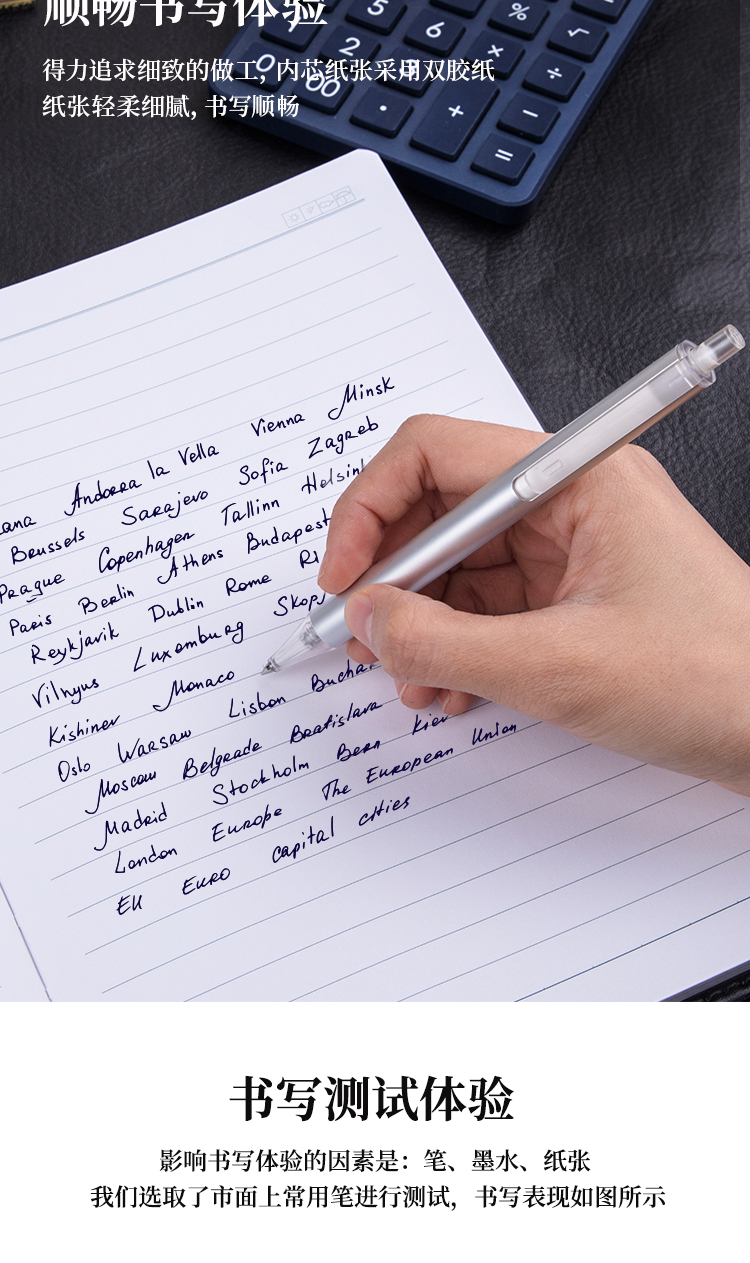 顺畅书写体验
得力追求细致的做工, 内芯纸张采用双胶纸
纸张轻柔细腻, 书写顺畅
5 % √
2 6 × ÷
0 00 · + −
=
Andorra la Vella Vienna Minsk
Brussels Sarajevo Sofia Zagreb
Prague Copenhagen Tallinn
Paris Berlin Athens Budapest
Reykjavik Dublin Rome
Vilnyus Luxemburg
Kishinev Monaco
Oslo Warsaw Lisbon
Moscow Belgrade Bratislava
Madrid Stockholm Bern Kiev
London Europe The European Union
EU EURO capital cities
书写测试体验
影响书写体验的因素是：笔、墨水、纸张
我们选取了市面上常用笔进行测试，书写表现如图所示